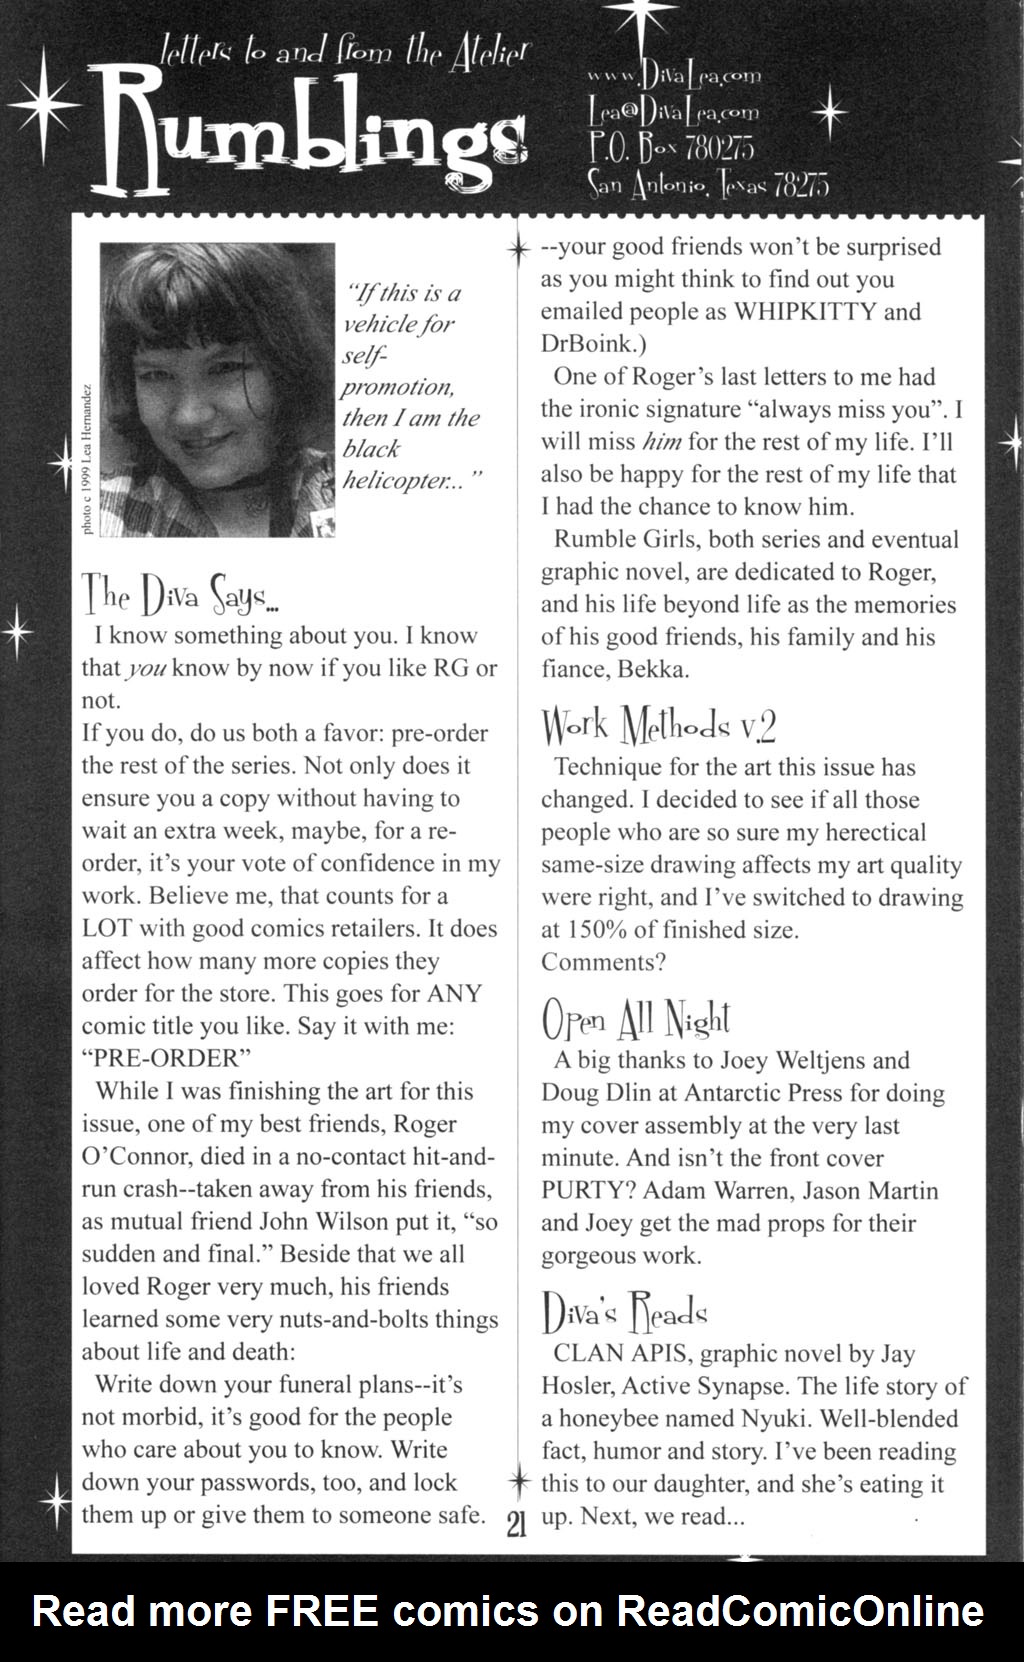 letters to and from the Atelier
Rumblings
www.DivaLea.com
Lea@DivaLea.com
P.O. Box 780275
San Antonio, Texas 78275
photo c 1999 Lea Hernandez
“If this is a
vehicle for
self-
promotion,
then I am the
black
helicopter... ”
The Diva Says...
I know something about you. I know
that you know by now if you like RG or
not.
If you do, do us both a favor: pre-order
the rest of the series. Not only does it
ensure you a copy without having to
wait an extra week, maybe, for a re-
order, it’s your vote of confidence in my
work. Believe me, that counts for a
LOT with good comics retailers. It does
affect how many more copies they
order for the store. This goes for ANY
comic title you like. Say it with me:
“PRE-ORDER”
While I was finishing the art for this
issue, one of my best friends, Roger
O’Connor, died in a no-contact hit-and-
run crash--taken away from his friends,
as mutual friend John Wilson put it, “so
sudden and final.” Beside that we all
loved Roger very much, his friends
learned some very nuts-and-bolts things
about life and death:
Write down your funeral plans--it’s
not morbid, it’s good for the people
who care about you to know. Write
down your passwords, too, and lock
them up or give them to someone safe.
--your good friends won’t be surprised
as you might think to find out you
emailed people as WHIPKITTY and
DrBoink.)
One of Roger’s last letters to me had
the ironic signature “always miss you”. I
will miss him for the rest of my life. I’ll
also be happy for the rest of my life that
I had the chance to know him.
Rumble Girls, both series and eventual
graphic novel, are dedicated to Roger,
and his life beyond life as the memories
of his good friends, his family and his
fiance, Bekka.
Work Methods v.2
Technique for the art this issue has
changed. I decided to see if all those
people who are so sure my herectical
same-size drawing affects my art quality
were right, and I’ve switched to drawing
at 150% of finished size.
Comments?
Open All Night
A big thanks to Joey Weltjens and
Doug Dlin at Antarctic Press for doing
my cover assembly at the very last
minute. And isn’t the front cover
PURTY? Adam Warren, Jason Martin
and Joey get the mad props for their
gorgeous work.
Diva’s Reads
CLAN APIS, graphic novel by Jay
Hosler, Active Synapse. The life story of
a honeybee named Nyuki. Well-blended
fact, humor and story. I’ve been reading
this to our daughter, and she’s eating it
up. Next, we read...
21
Read more FREE comics on ReadComicOnline